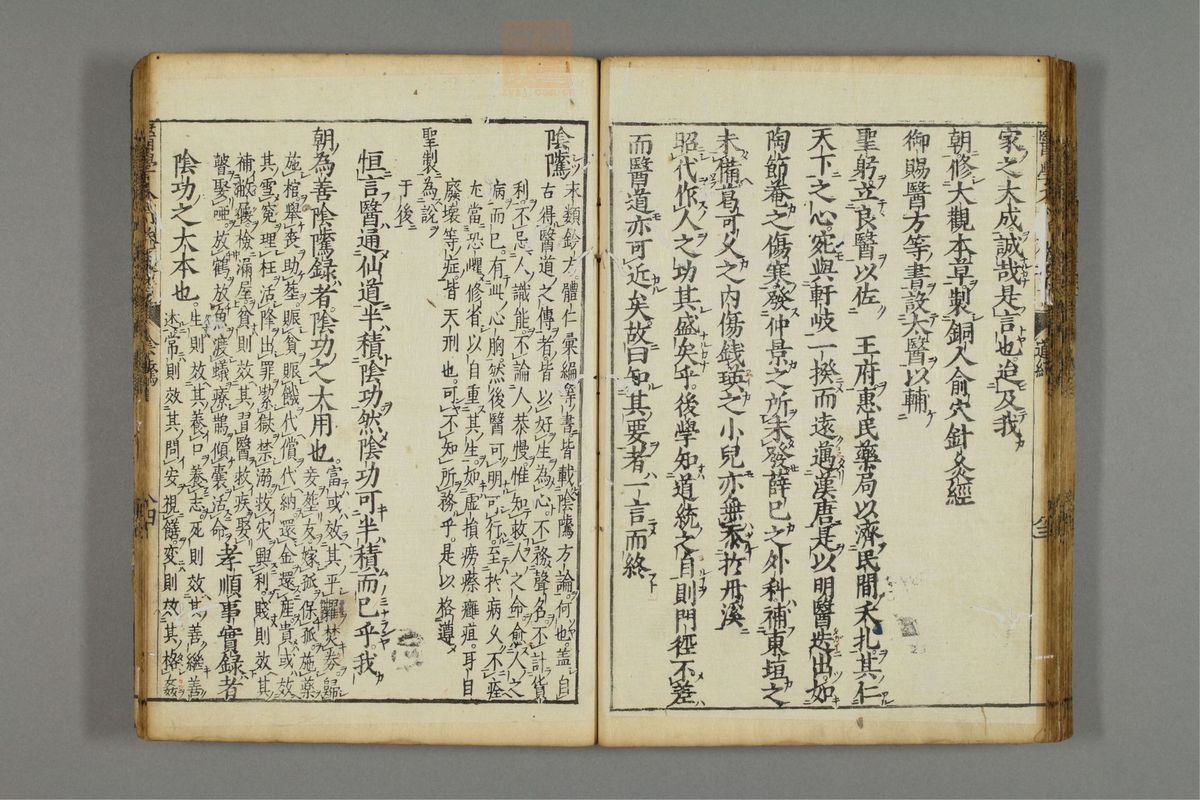 家之大成誠哉是言也迨及我
朝修大觀本草製銅人俞穴針灸經
御賜醫方等書設太醫以輔
聖躬立良醫以佐 王府惠民藥局以濟民間夭札其仁
天下之心宛與軒岐一揆而遠邁漢唐是以明醫迭出如
陶節菴之傷寒發仲景之所未發薛已之外科補東垣之
未備葛可久之內傷錢瑛之小兒亦無忝於丹溪
昭代作人之功其盛矣乎後學知道統之自則門徑不差
而醫道亦可近矣故曰知其要者一言而終
陰騭
末類鈐方體仁彙編等書皆載陰騭方論何也盖自
古得醫道之傳者皆以好生為心不務聲名不計貨
利不忌人識能不論人恭慢惟知救人之命愈人之
病而已有此心胸然後醫可明可行至於病久不痊
尢當恐懼修省以自重其生如虛損癆瘵癰疽耳目
廢壞等症皆天刑也可不知所務乎是以格遵
聖製為說
于後
恒言醫通仙道半積陰功然陰功可半積而已乎我
朝為善陰騭録者陰功之大用也
富或效其平糶焚券歸
妾塟友嫁孤保孤施藥
施棺舉喪助塟賑貧賑餓代償代納還金還産貴或效
其雪冤理枉活降出罪禁獄禁溺救灾興利賤則效其
補敝𥀷檢漏屋貧則效其習醫救疾娶
瞽娶啞放鶴放魚渡蟻療鵲傾囊活命
孝順事實録者
陰功之大本也
生則效其養口養志死則效其善繼善
述常則效其問安視饍變則效其格姦